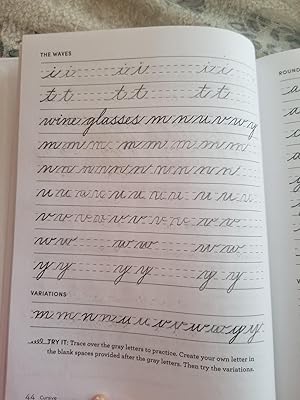 THE WAVES
i i i i i i
t t t t t t
wine glasses m n u v w y
m m m m m m m m
n n n n n n n n n
u u u u u u u u u u
v v v v v v v v v v
w w w w w w
y y y y y y
VARIATIONS
m m n n u u v v w w y y
TRY IT: Trace over the gray letters to practice. Create your own letter in
the blank spaces provided after the gray letters. Then try the variations.
44 Cursive
ROUND